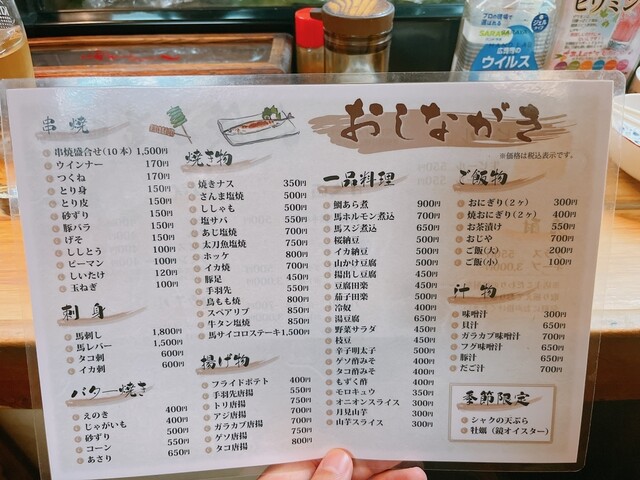 おしながき
※価格は税込表示です。
串焼
串焼盛合せ(10本) 1,500円
ウインナー 170円
つくね 170円
とり身 150円
とり皮 150円
砂ずり 150円
豚バラ 150円
げそ 150円
ししとう 100円
ピーマン 100円
しいたけ 120円
玉ねぎ 100円
刺身
馬刺し 1,800円
馬レバー 1,500円
タコ刺 600円
イカ刺 600円
バター焼き
えのき 400円
じゃがいも 400円
砂ずり 500円
コーン 550円
あさり 650円
焼き物
焼きナス 350円
さんま塩焼 500円
ししゃも 500円
塩サバ 550円
あじ塩焼 700円
太刀魚塩焼 750円
ホッケ 800円
イカ焼 700円
豚足 450円
手羽先 550円
鳥もも焼 800円
スペアリブ 850円
牛タン塩焼 800円
馬サイコロステーキ 1,500円
揚げ物
フライドポテト 400円
手羽先唐揚 550円
トリ唐揚 700円
アジ唐揚 700円
ガラカブ唐揚 750円
ゲソ唐揚 700円
タコ唐揚 800円
一品料理
鯛あら煮 900円
馬ホルモン煮込 700円
馬スジ煮込 650円
桜納豆 500円
イカ納豆 500円
山かけ豆腐 500円
揚出し豆腐 450円
豆腐田楽 450円
茄子田楽 500円
冷奴 400円
湯豆腐 650円
野菜サラダ 450円
枝豆 450円
辛子明太子 500円
ゲソ酢みそ 400円
タコ酢みそ 450円
もずく酢 400円
モロキュウ 350円
オニオンスライス 300円
月見山芋 300円
山芋スライス 300円
ご飯物
おにぎり(2ヶ) 300円
焼おにぎり(2ヶ) 400円
お茶漬け 550円
おじや 700円
ご飯(大) 200円
ご飯(小) 100円
汁物
味噌汁 300円
貝汁 650円
ガラカブ味噌汁 700円
フグ味噌汁 650円
豚汁 650円
だご汁 700円
季節限定
シャクの天ぷら
牡蠣(鏡オイスター)
プロの現場で
選ばれる
SARAYA
広範囲の
ウイルス
ビタミン